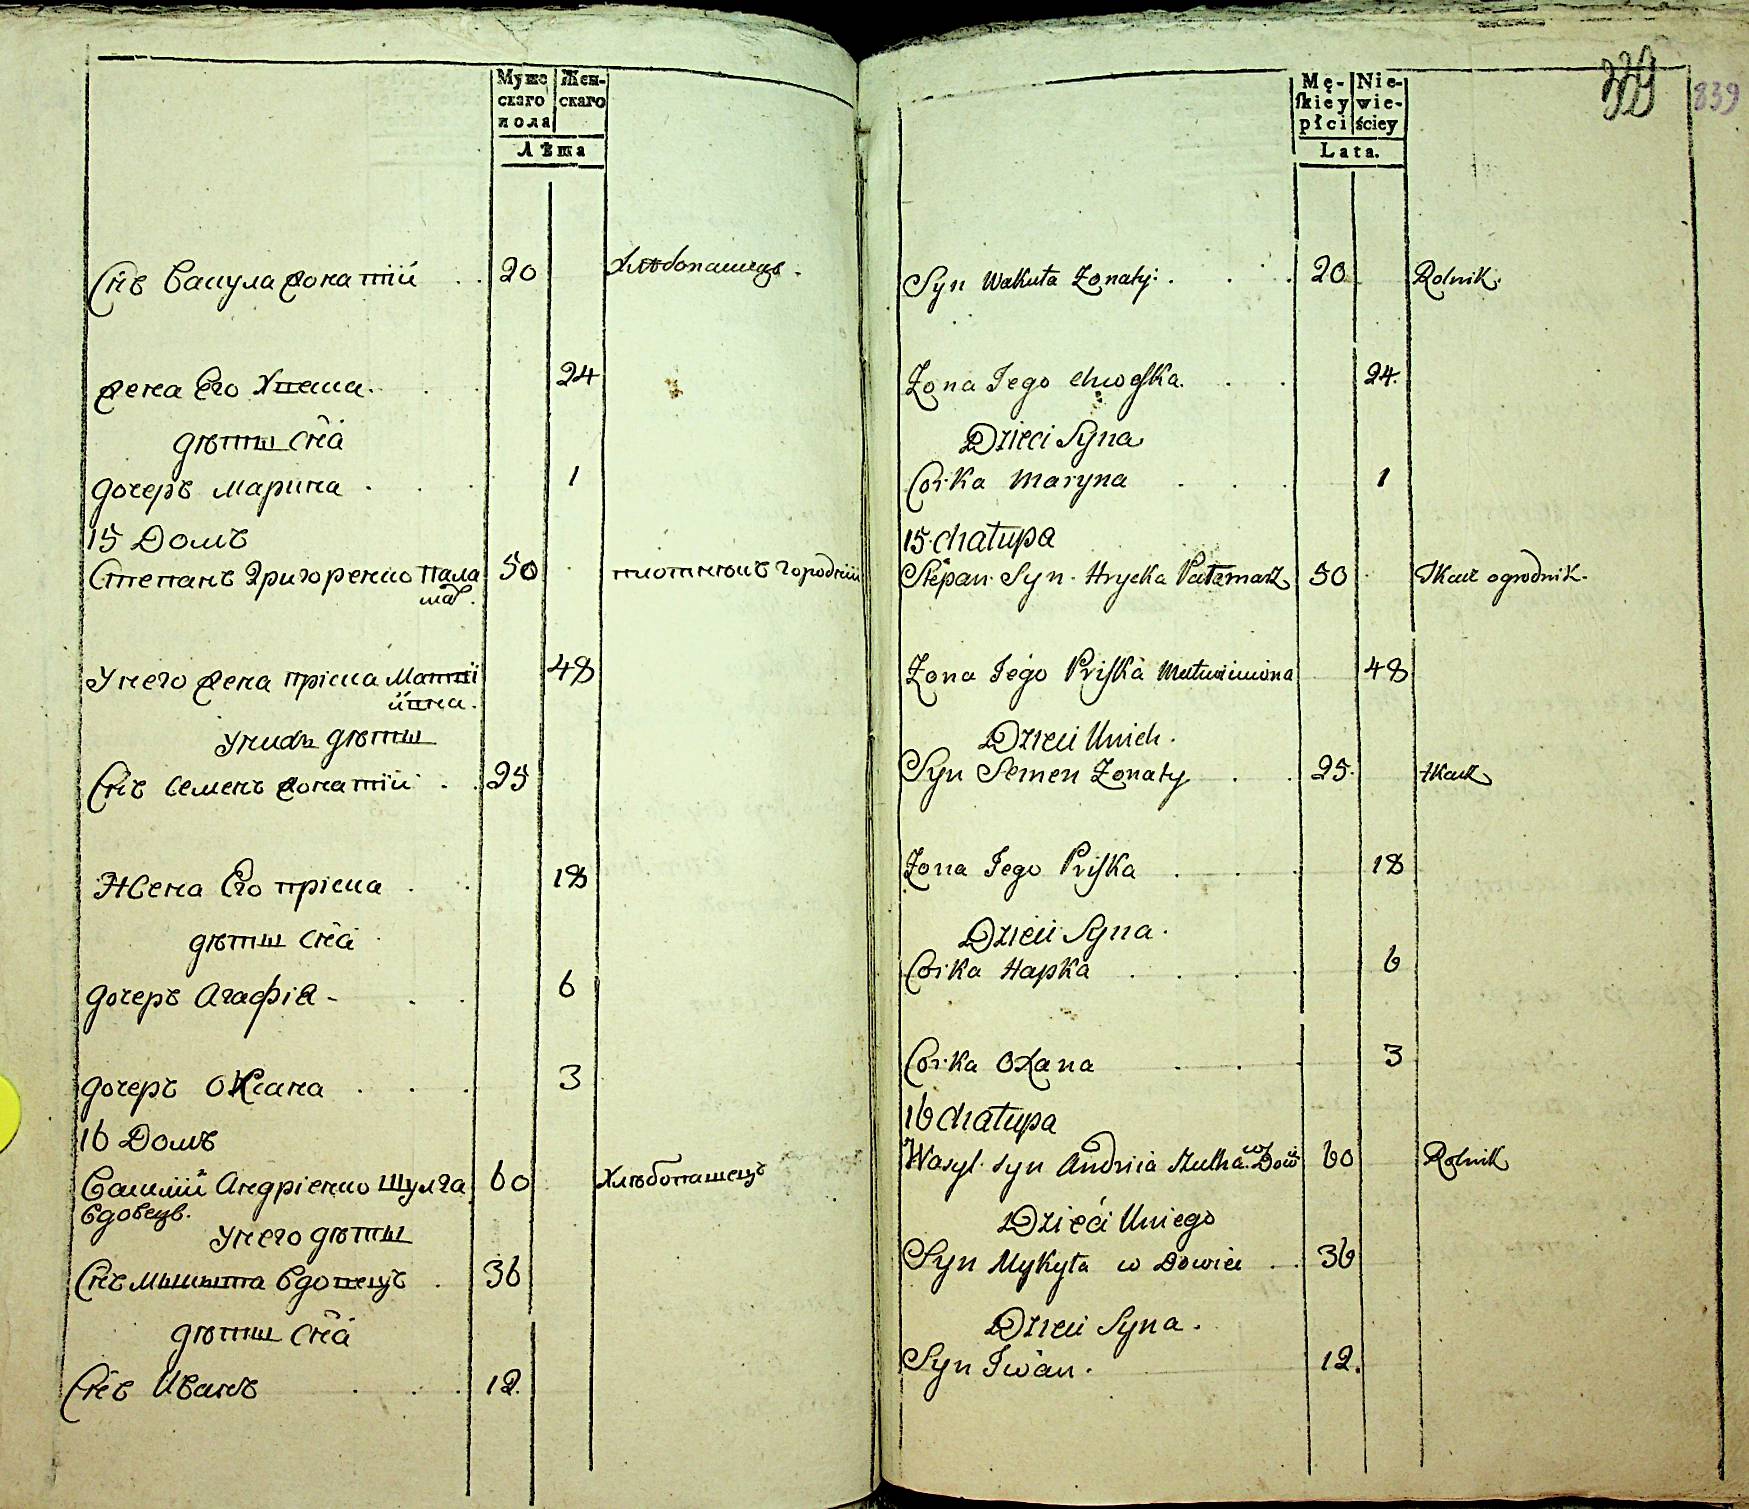 Мужескаго пола
Женскаго
Лѣта
Снъ Вакула жонатій 20 Хлѣбопашецъ.
жена Его Хвеска. 24
дѣти Сна
дочеръ Марина 1
15 Домъ
Степанъ Григоренко Пала
мар. 50 ткачъ городній
У него жена Пріска Матві
йвна. 48
У нихъ дѣти
Снъ Семенъ жонатій 25
Жена Его Пріска 18
дѣти Сна
дочеръ Агафія 6
дочеръ Оксана 3
16 Домъ
Василій Андріенко Шулга 60 Хлѣбопашецъ
вдовецъ.
У него дѣти
Снъ Микита вдовецъ 36
дѣти Сна
Снъ Иванъ 12
839
Męſkiey płci
Niewieściey
Lata.
Syn Wakuła Żonaty 20 Rolnik.
Żona Jego Chweſka. 24.
Dzieci Syna
Corka Maryna 1
15 Chałupa
Stepan Syn Hrycka Pałamarz 50 Tkacz ogrodnik.
Żona Jego Priſka 48
Dzieci Unich.
Syn Semen Żonaty 25. tkacz
Żona Jego Priſka 18
Dzieci Syna.
Corka Hapka 6
Corka Oxana 3
16 Chałupa
Wasyl syn Andrija Szulha 60 Rolnik
Dzieci Uniego
Syn Mykyta w Dowiec 36
Dzieci Syna.
Syn Iwan. 12.